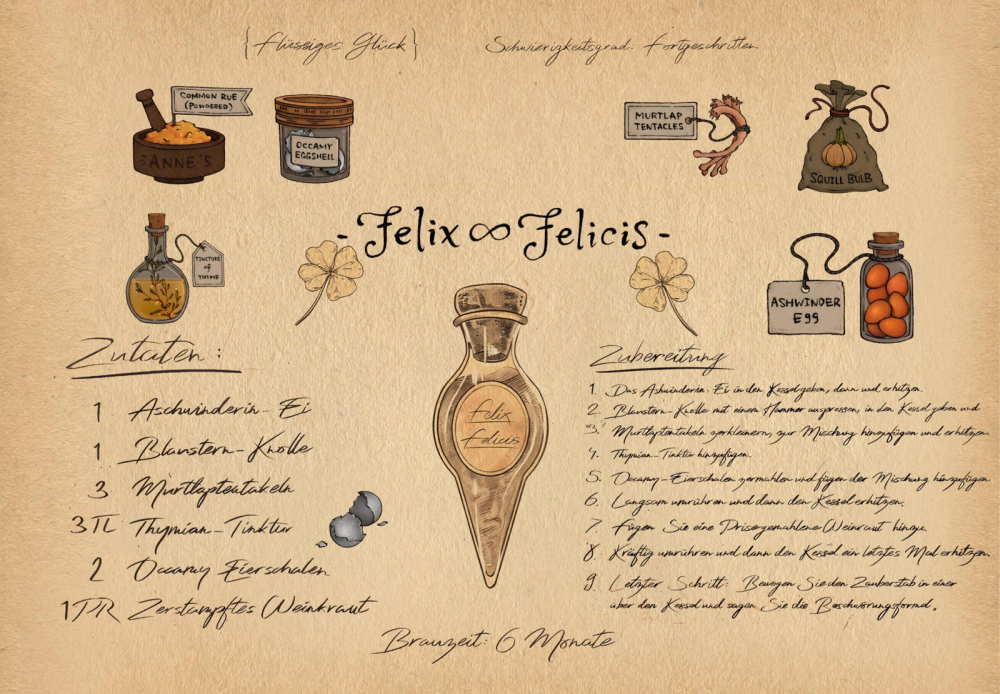 {flüssiges Glück}
Schwierigkeitsgrad: Fortgeschritten
COMMON RUE
(POWDERED)
ANNE'S
OCCAMY
EGGSHELL
MURTLAP
TENTACLES
SQUILL BULB
-Felix ∞ Felicis-
TINCTURE
of
THYME
ASHWINDER
E99
Zutaten:
1 Aschwinderin-Ei
1 Blaustern-Knolle
3 Murtlaptentakeln
3TL Thymian-Tinktur
2 Occamy Eierschalen
1PR Zerstampftes Weinkraut
felix
felicis
Zubereitung
1. Das Ashwinderin-Ei in den Kessel geben, dann und erhitzen.
2. Blaustern-Knolle mit einem Hammer auspressen, in den Kessel geben und
"3." Murtlaptentakeln zerkleinern, zur Mischung hinzufügen und erhitzen.
4. Thymian-Tinktur hinzufügen.
5. Occamy-Eierschalen zermahlen und fügen der Mischung hinzufügen
6. Langsam umrühren und dann den Kessel erhitzen.
7. Fügen Sie eine Prise gemahlene Weinraut hinzu.
8. Kräftig umrühren und dann den Kessel ein letztes Mal erhitzen.
9. Letzter Schritt: Bewegen Sie den Zauberstab in einer
über den Kessel und sagen Sie die Beschwörungsformel.
Brauzeit: 6 Monate